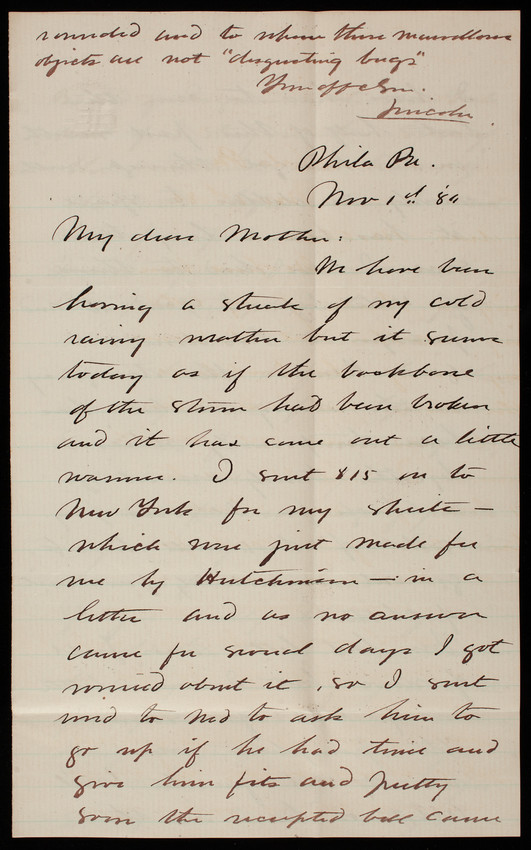 rounded and to whom these marvellous
objects are not "disgusting bugs"
Your aff. Son.
Lincoln
Phila Pa.
Nov 1st '80
My dear Mother:
We have been
having a streak of very cold
rainy weather but it seems
today as if the backbone
of the storm had been broken
and it has come out a little
warmer. I sent $15 on to
New York for my shirts —
which were just made for
me by Hutchinson — in a
letter and as no answer
came for several days I got
worried about it, so I sent
word to Ned to ask him to
go up if he had time and
give him fits and pretty
soon the receipted bill came